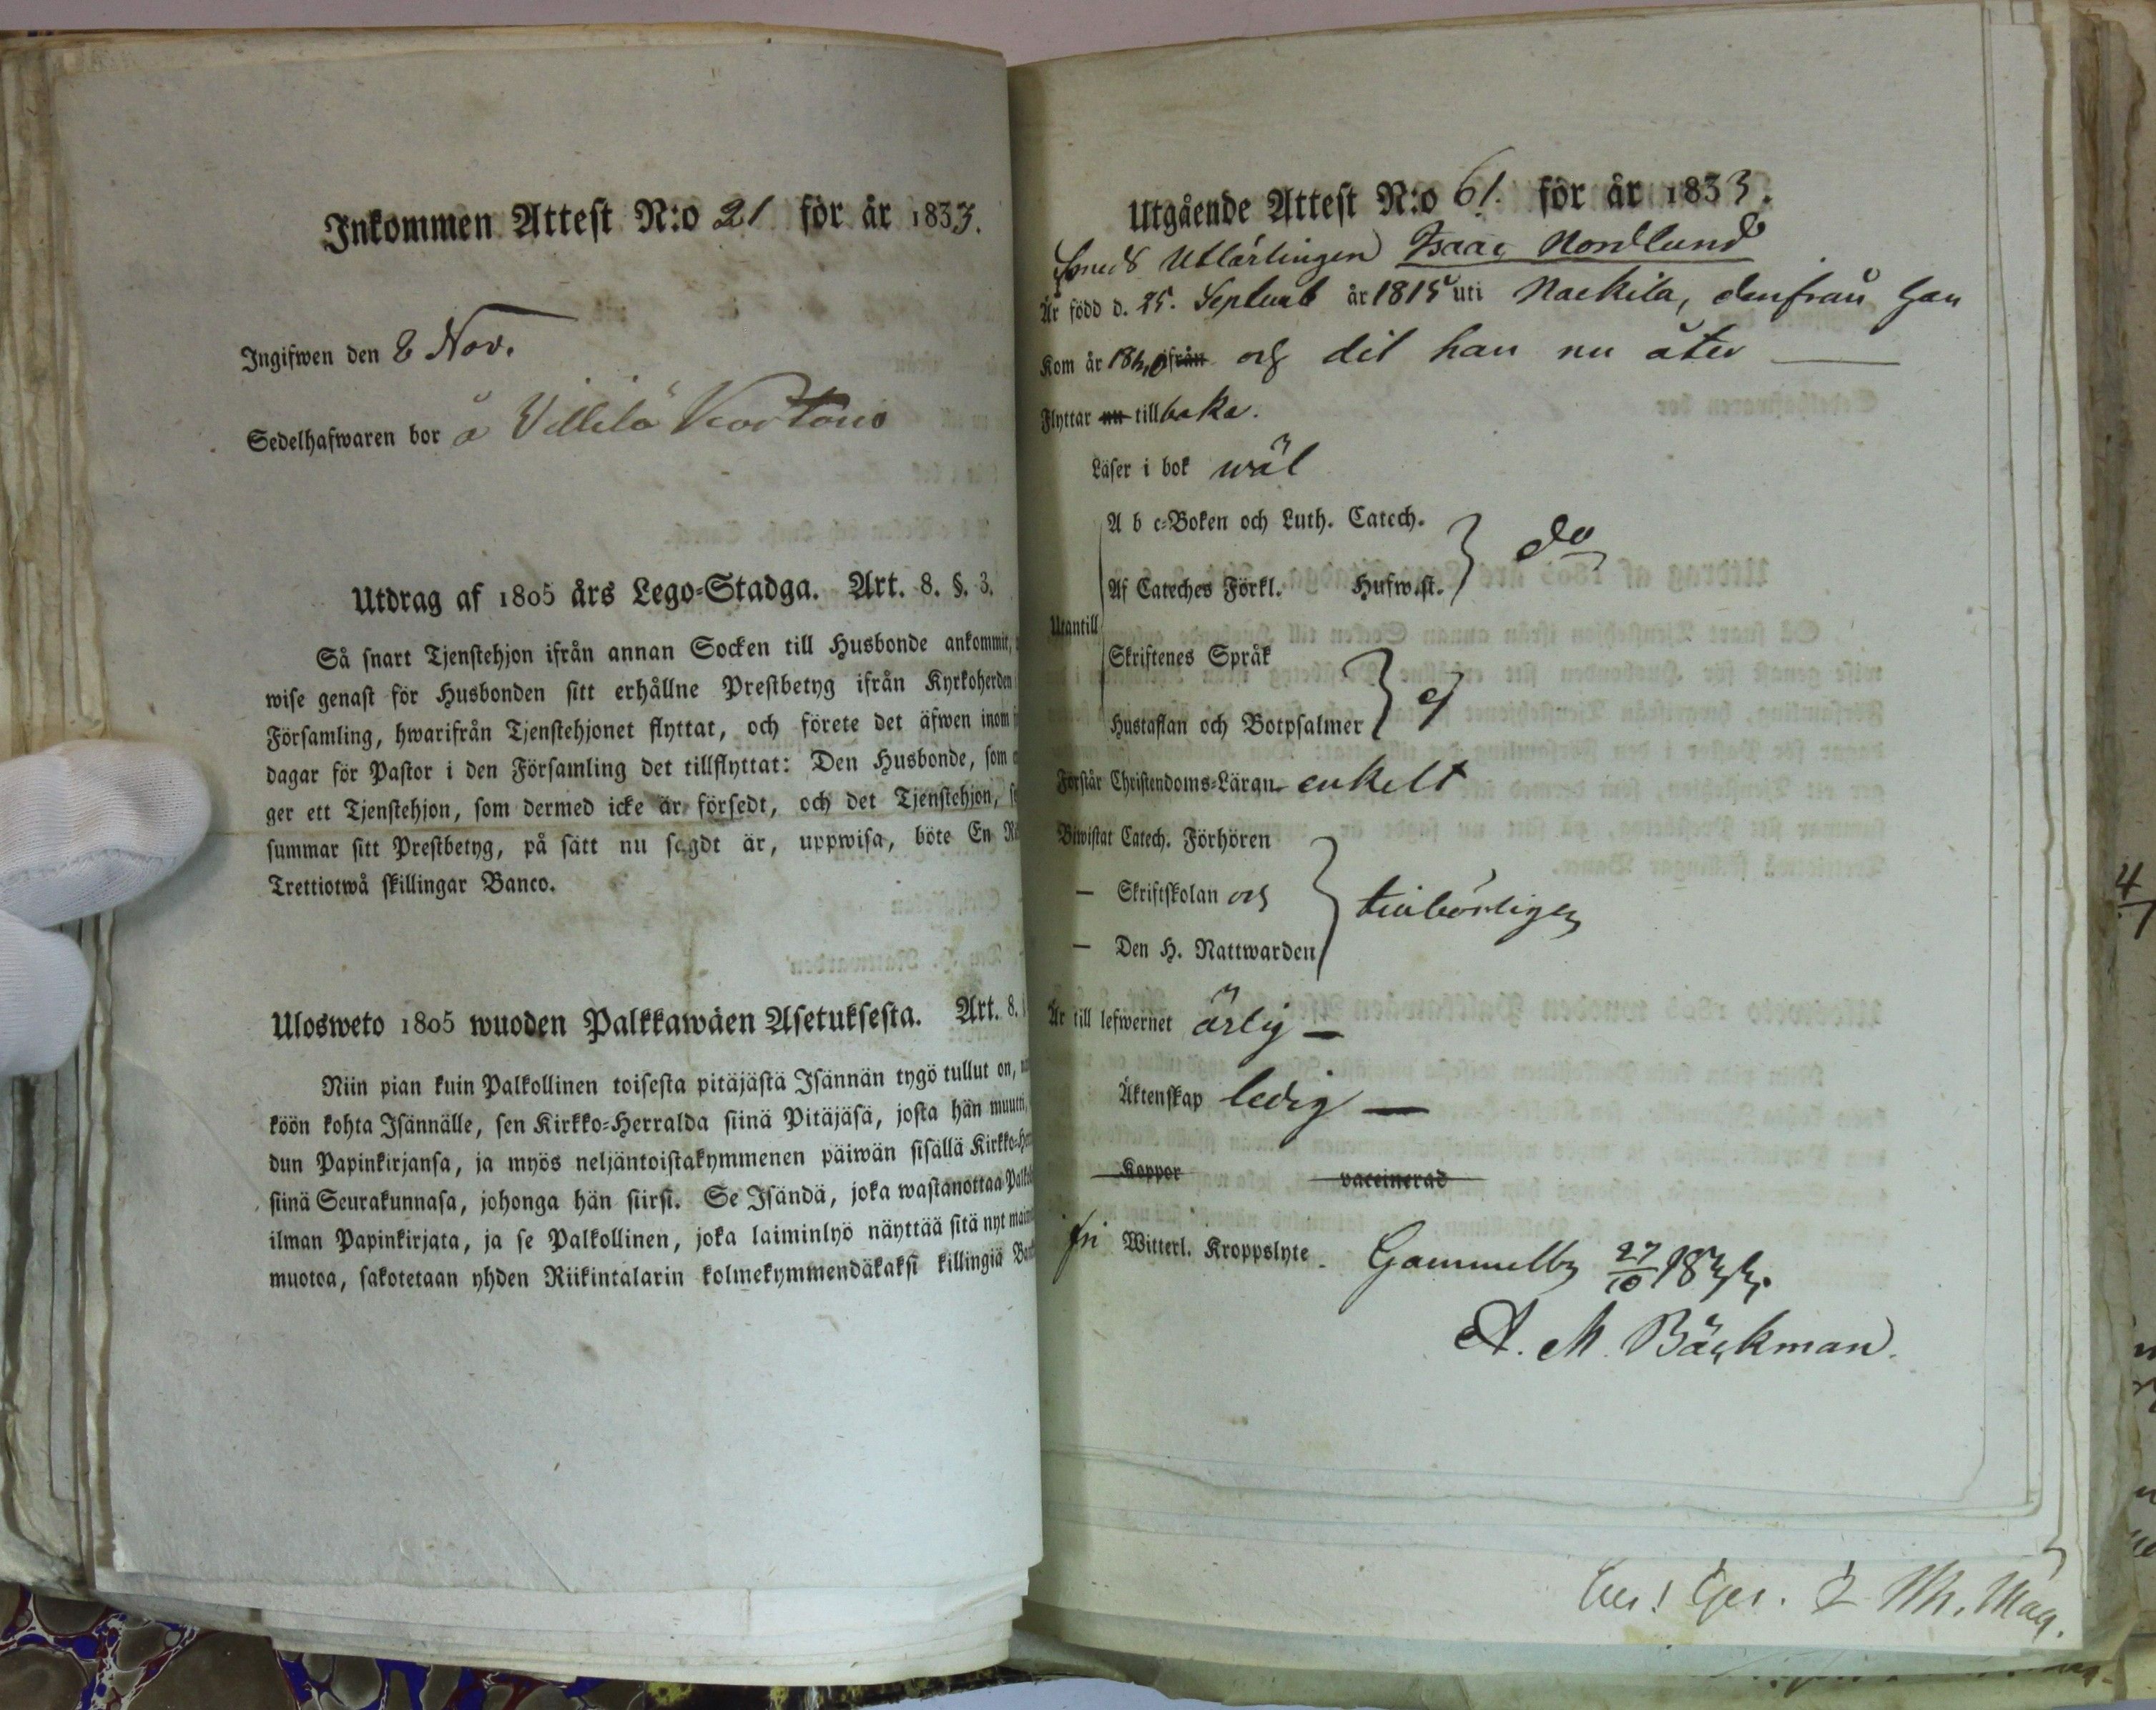 Inkommen Attest N:o 21 för år 1833.
Ingifwen den 8 Nov.
Sedelhafwaren bor å Villilä
Utdrag af 1805 års Lego-Stadga. Art. 8. §. 3.
Så snart Tjenstehjon ifrån annan Socken till Husbonde ankommit,
wise genast för Husbonden sitt erhållne Prestbetyg ifrån Kyrkoherden
Församling, hwarifrån Tjenstehjonet flyttat, och förete det äfwen inom
dagar för Pastor i den Församling det tillflyttat: Den Husbonde, som
ger ett Tjenstehjon, som dermed icke är försedt, och det Tjenstehjon,
summar sitt Prestbetyg, på sätt nu sagdt är, uppwisa, böte En
Trettiotwå skillingar Banco.
Ulosweto 1805 wuoden Palkkawäen Asetuksesta. Art. 8.
Niin pian kuin Palkollinen toisesta pitäjästä Isännän tygö tullut on,
köön kohta Isännälle, sen Kirkko-Herralda siinä Pitäjäsä, josta hän muutti,
dun Papinkirjansa, ja myös neljäntoistakymmenen päiwän sisällä Kirkko-
siinä Seurakunnasa, johonga hän siirsi. Se Isändä, joka wastanottaa
ilman Papinkirjata, ja se Palkollinen, joka laiminlyö näyttää sitä nyt
muotoa, sakotetaan yhden Riikintalarin kolmekymmendäkaksi killingiä
Utgående Attest N:o 61. för år 1833.
Smeds Utlärlingen Isaac Nordlund
Är född d. 25. Septemb år 1815 uti Nackila, denfrån han
Kom år ifrån och dit han nu åter
Flyttar nu tillbaka.
Läser i bok wäl
A b c-Boken och Luth. Catech.
do
Af Cateches Förkl. Husw.st.
Utantill
Skriftenes Språk
ej
Hustaflan och Botpsalmer
Förstår Christendoms-Läran enkelt
Biwistat Catech. Förhören
— Skriftskolan och
— Den H. Nattwarden
Är till lefwernet ärlig —
Äktenskap ledig —
Koppor vaccinerad
fri Witterl. Kroppslyte. Gammelby 27/10 1833.
A. M. Bäckman.